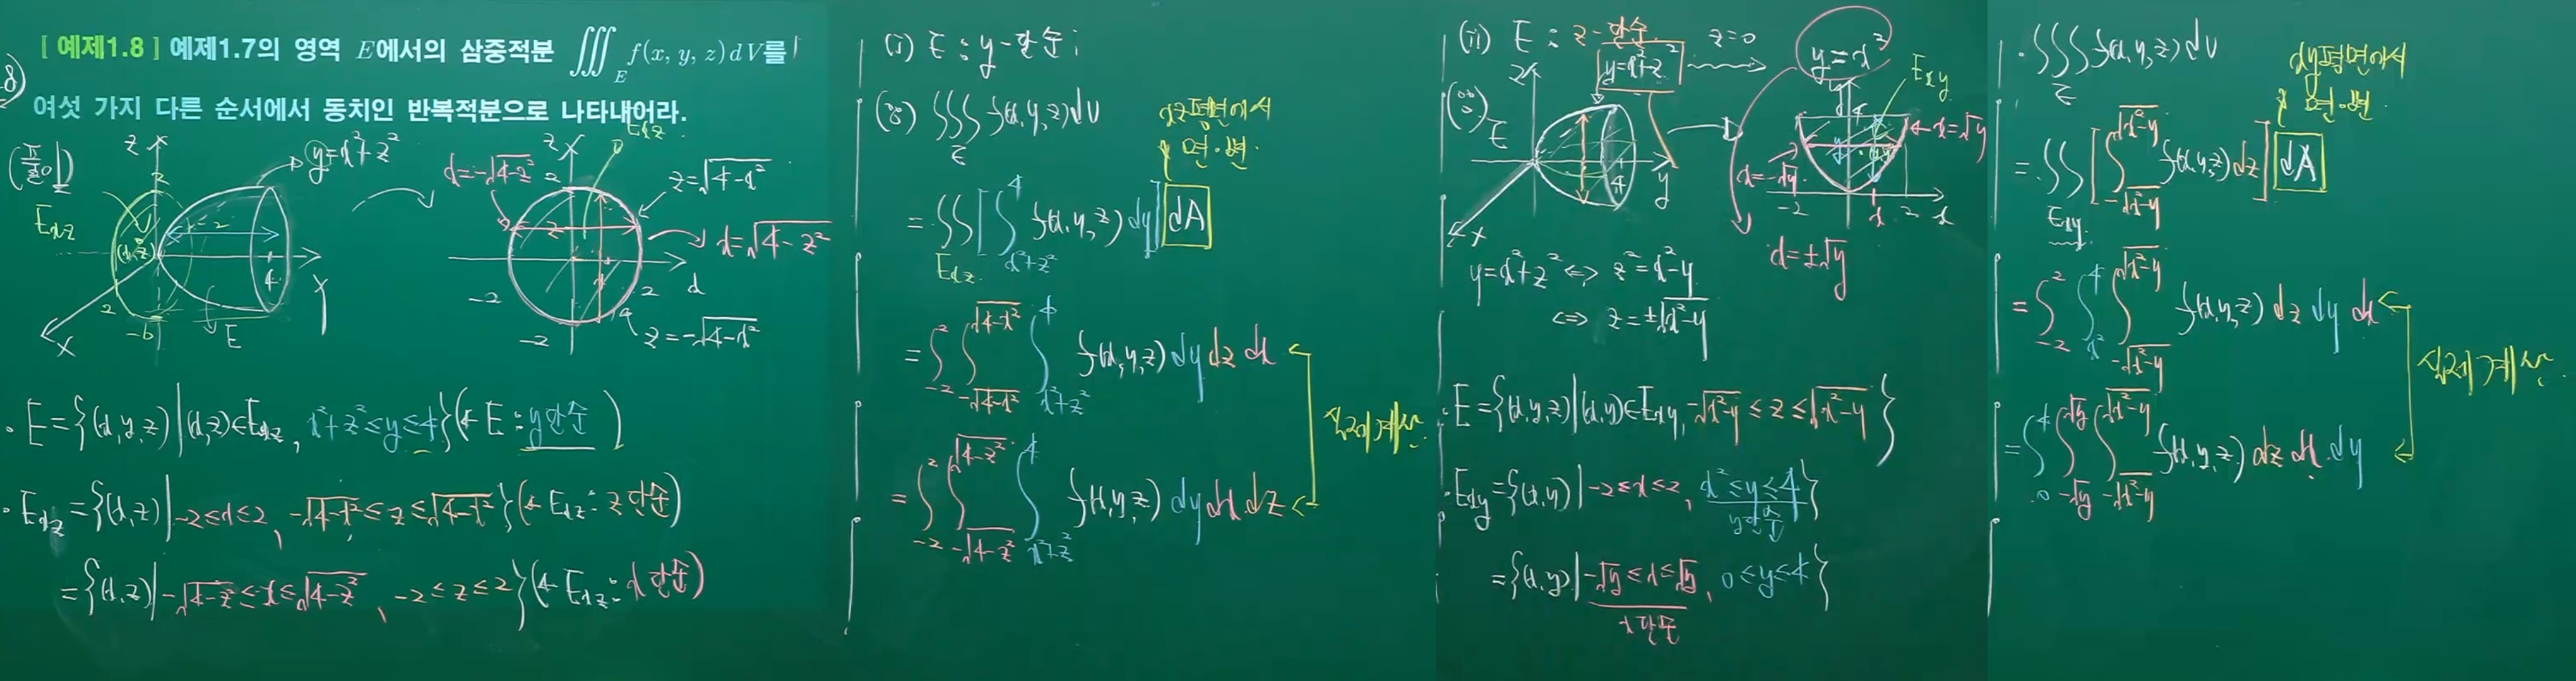 [ 예제1.8 ] 예제1.7의 영역 E에서의 삼중적분 ∭_E f(x, y, z)dV를
여섯 가지 다른 순서에서 동치인 반복적분으로 나타내어라.
8)
(풀이)
z
2
y=x²+z²
E_xz
(x,z)
4
y
x
2
-2
E
z
E_xz
x=-√4-z²
2
z=√4-x²
x=√4-z²
-2
2
x
-2
z=-√4-x²
· E={(x,y,z)|(x,z)∈E_xz, x²+z²≤y≤4}(← E : y단순)
· E_xz={(x,z)|-2≤x≤2, -√4-x²≤z≤√4-x²}(← E_xz: z단순)
={(x,z)|-√4-z²≤x≤√4-z², -2≤z≤2}(← E_xz: x단순)
(i) E : y-단순;
(∵) ∭_E f(x,y,z)dV
xz평면에서
면·변.
=∬_E_xz [∫_{x²+z²}^{4} f(x,y,z)dy] dA
=∫_{-2}^{2} ∫_{-√4-x²}^{√4-x²} ∫_{x²+z²}^{4} f(x,y,z) dy dz dx
실제계산
=∫_{-2}^{2} ∫_{-√4-z²}^{√4-z²} ∫_{x²+z²}^{4} f(x,y,z) dy dx dz
(ii) E : z-단순
y=x²+z²
z=0
y=x²
(∵)
z
E
4
y
x
E_xy
4
x=√y
x=-√y
-2
x
2
x
x=±√y
y=x²+z² ⇔ z²=x²-y
⇔ z=±√x²-y
· E={(x,y,z)|(x,y)∈E_xy, -√x²-y≤z≤√x²-y}
· E_xy={(x,y)|-2≤x≤2, x²≤y≤4}
y단순
={(x,y)|-√y≤x≤√y, 0≤y≤4}
x단순
· ∭_E f(x,y,z)dV
xy평면에서
면·변.
=∬_E_xy [∫_{-√x²-y}^{√x²-y} f(x,y,z)dz] dA
=∫_{-2}^{2} ∫_{x²}^{4} ∫_{-√x²-y}^{√x²-y} f(x,y,z) dz dy dx
실제계산.
=∫_{0}^{4} ∫_{-√y}^{√y} ∫_{-√x²-y}^{√x²-y} f(x,y,z) dz dx dy